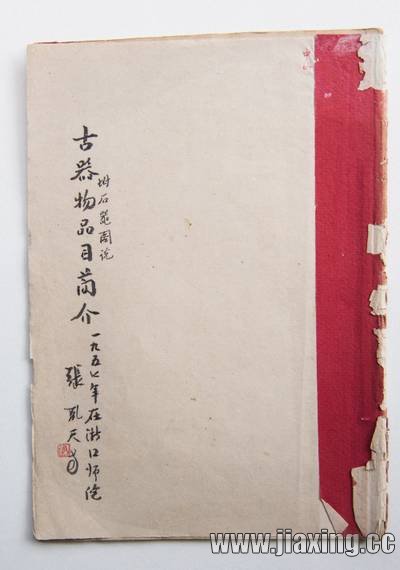 古器物品目简介
附石器图说
一九五七年在浙江师院
張凤天方
www.jiaxing.cc